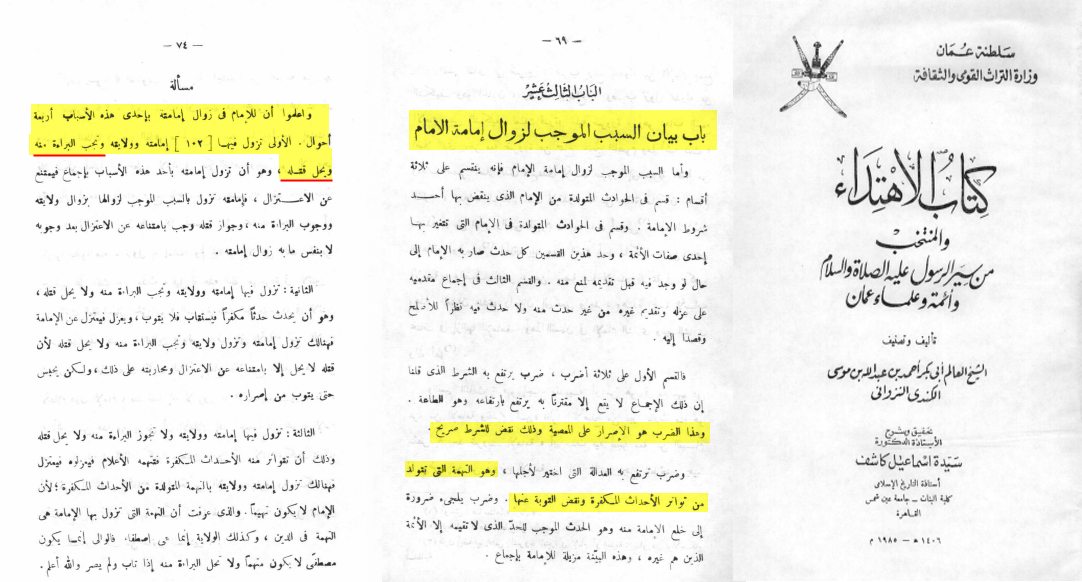 سلطنة عُمان
وزارة التراث القومى والثقافة
كتاب الاهتداء
والمنتخب
من سير الرسول عليه الصلاة والسلام
وأئمة وعلماء عمان
تأليف وتصنيف
الشيخ العالم أبى بكر أحمد بن عبد الله بن موسى
الكندى النزوانى
تحقيق وشرح
الأستاذة الدكتورة
سيدة اسماعيل كاشف
أستاذة التاريخ الإسلامى
كلية البنات – جامعة عين شمس
القاهرة
١٤٠٦ هـ – ١٩٨٥ م
– ٦٩ –
الباب الثالث عشر
باب بيان السبب الموجب لزوال إمامة الامام
وأما السبب الموجب لزوال إمامة الإمام فإنه ينقسم على ثلاثة
أقسام : قسم فى الحوادث المتولدة من الإمام الذى ينقض بها أحد
شروط الإمامة . وقسم فى الحوادث المتولدة فى الإمام التى تتغير بها
إحدى صفات الأئمة ، وحد هذين القسمين كل حدث صار به الإمام إلى
حال لو وجد فيه قبل تقديمه لمنع منه . والقسم الثالث فى إجماع مقدميه
على عزله وتقديم غيره من غير حدث منه ولا حدث فيه نظراً للأصلح
وقصدا إليه .
فالقسم الأول على ثلاثة أضرب ، ضرب يرتفع به الشرط الذى قلنا
إن ذلك الإجماع لا يقع إلا مقترناً به يرتفع بارتفاعه وهو الطاعة .
وهذا الضرب هو الإصرار على المعصية وذلك نقض للشرط صريح .
وضرب ترتفع به العدالة التى اختير لأجلها ، وهو التهمة التى تتولد
من تواتر الأحداث المكفرة ونقض التوبة عنها . وضرب يلجىء ضرورة
إلى خلع الإمامة منه وهو الحدث الموجب للحدّ الذى لا تقيمه إلا الأئمة
الذين هم غيره ، وهذه البيّنة مزيلة للإمامة بإجماع .
– ٧٤ –
مسألة
واعلموا أن للإمام فى زوال إمامته بإحدى هذه الأسباب أربعة
أحوال . الأولى تزول فيها [ ١٠٢ ] إمامته وولايته وتجب البراءة منه
ويحل قتله ، وهو أن تزول إمامته بأحد هذه الأسباب بإجماع فيمتنع
عن الاعتزال ، فإمامته تزول بالسبب الموجب لزوالها بزوال ولايته
ووجوب البراءة منه ، وجواز قتله وجب بامتناعه عن الاعتزال بعد وجوبه
لا بنفس ما به زوال إمامته .
الثانية : تزول فيها إمامته وولايته وتجب البراءة منه ولا يحل قتله ،
وهو أن يحدث حدثاً مكفراً فيستتاب فلا يتوب ، ويعزل فيعتزل عن الإمامة
فهنالك تزول إمامته وتزول ولايته وتجب البراءة منه ولا يحل قتله لأن
قتله لا يحل إلا بامتناعه عن الاعتزال ومحاربته على ذلك ، ولكن يحبس
حتى يتوب من إصراره .
الثالثة : تزول فيها إمامته وولايته ولا تجوز البراءة منه ولا يحل قتله
وذلك أن تتواتر منه الأحداث المكفرة فتتهمه الأعلام فيعزلوه فيعتزل
فهنالك تزول إمامته وولايته بالتهمة المتولدة من الأحداث المكفرة ؛ لأن
الإمام لا يكون تهيماً . والذى عرفت أن التهمة التى تزول بها الإمامة هى
التهمة فى الدين ، وكذلك الولاية إنما هى اصطفاء فالوالى إنما يكون
مصطفًى لا يكون متهماً ولا تحل البراءة منه إذا تاب ولم يصر والله أعلم .